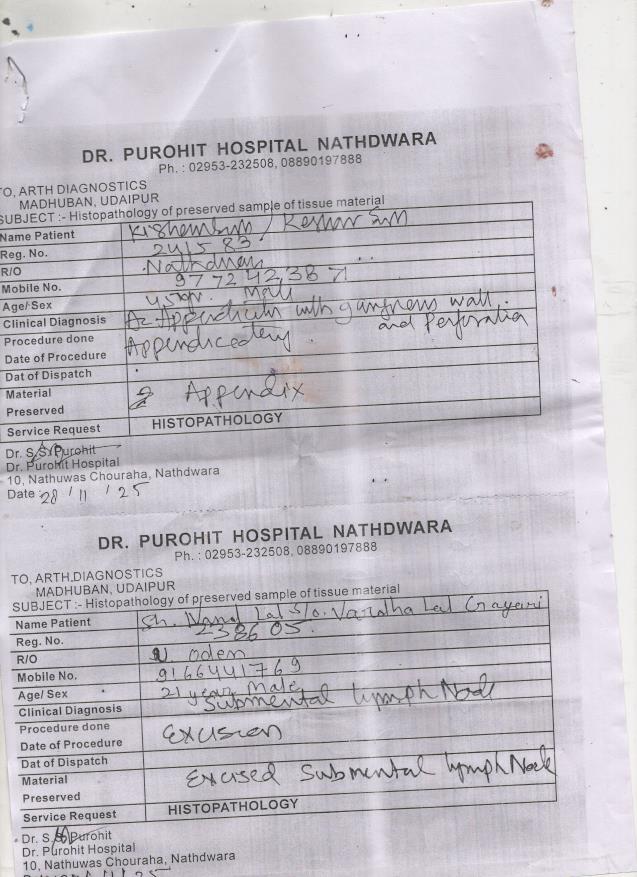 DR. PUROHIT HOSPITAL NATHDWARA
Ph. : 02953-232508, 08890197888
TO, ARTH DIAGNOSTICS
MADHUBAN, UDAIPUR
SUBJECT :- Histopathology of preserved sample of tissue material
Name Patient
Reg. No. 241583
R/O Nathdwara
Mobile No. 9772423871
Age/ Sex 45yr. Male
Clinical Diagnosis Ac. Appendicitis with gangrenous wall
and Perforation
Procedure done Appendicectomy
Date of Procedure
Dat of Dispatch
Material Appendix
Preserved
Service Request HISTOPATHOLOGY
Dr. S.S. Purohit
Dr. Purohit Hospital
10, Nathuwas Chouraha, Nathdwara
Date : 28/11/25
DR. PUROHIT HOSPITAL NATHDWARA
Ph. : 02953-232508, 08890197888
TO, ARTH.DIAGNOSTICS
MADHUBAN, UDAIPUR
SUBJECT :- Histopathology of preserved sample of tissue material
Name Patient Sh. Nand Lal S/o. Vardha Lal Gayari
Reg. No. 238605.
R/O Oden
Mobile No. 9166441769
Age/ Sex 21 year Male
Clinical Diagnosis Submental lymph Node
Procedure done Excision
Date of Procedure
Dat of Dispatch
Material Excised Submental lymph Node
Preserved
Service Request HISTOPATHOLOGY
Dr. S. Purohit
Dr. Purohit Hospital
10, Nathuwas Chouraha, Nathdwara